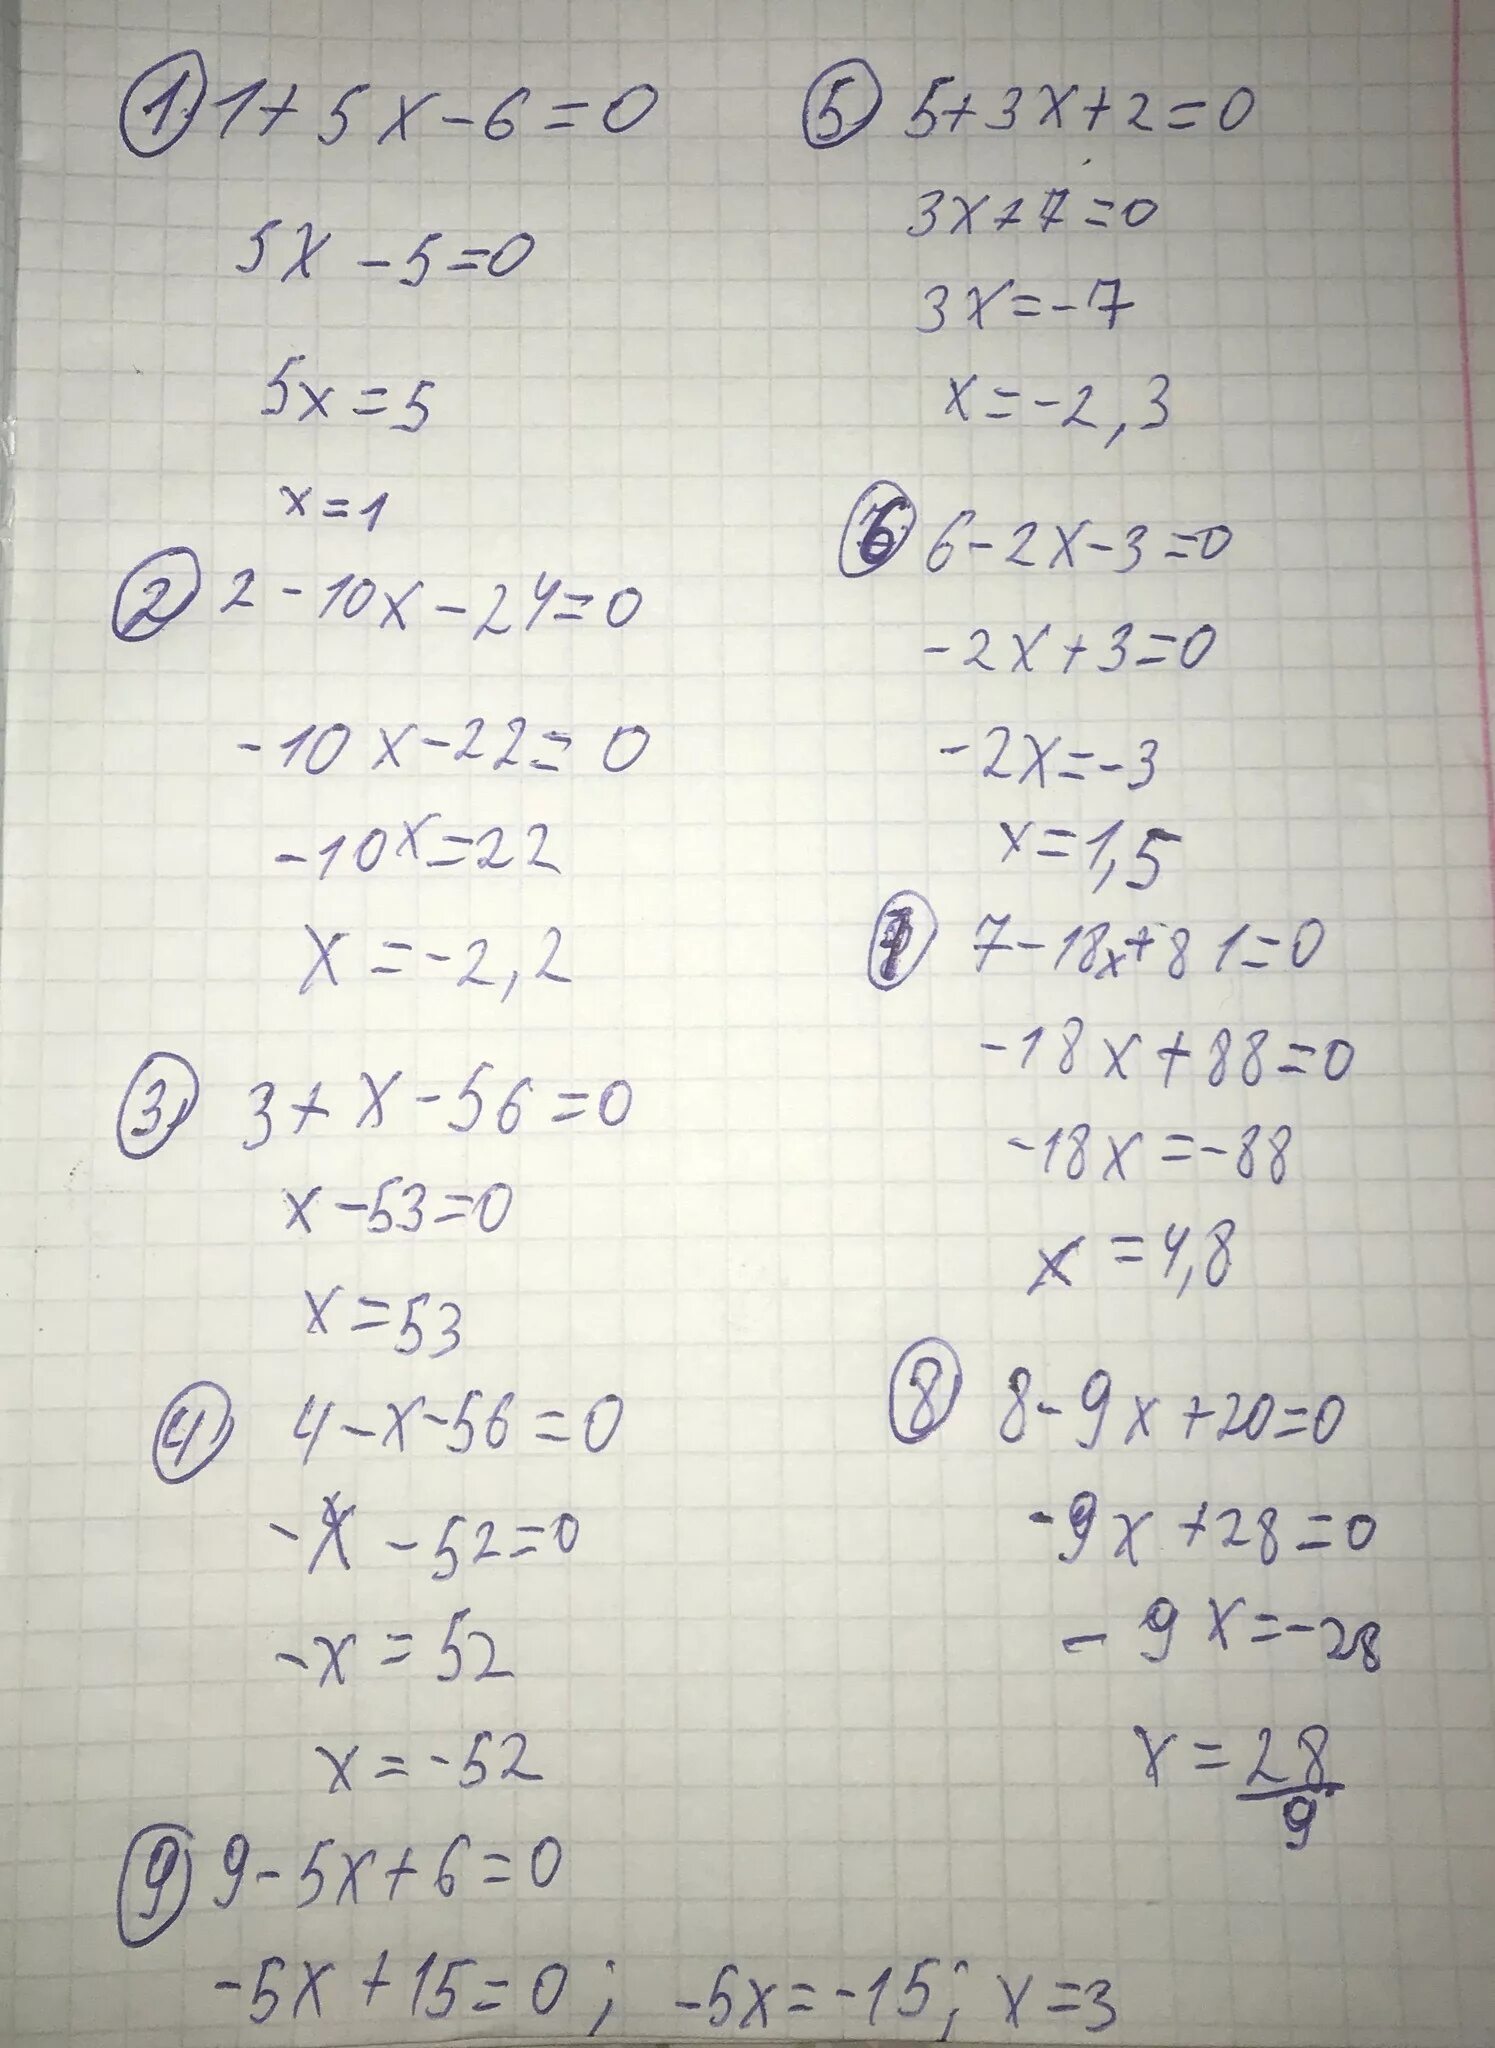 1. 1+5x-6=0
5x-5=0
5x=5
x=1
2. 2-10x-24=0
-10x-22=0
-10x=22
x=-2,2
3. 3+x-56=0
x-53=0
x=53
4. 4-x-56=0
-x-52=0
-x=52
x=-52
5. 5+3x+2=0
3x+7=0
3x=-7
x=-2,3
6. 6-2x-3=0
-2x+3=0
-2x=-3
x=1,5
7 7-18x+81=0
-18x+88=0
-18x=-88
x=4,8
8. 8-9x+20=0
-9x+28=0
-9x=-28
x=28/9
9. 9-5x+6=0
-5x+15=0; -5x=-15; x=3